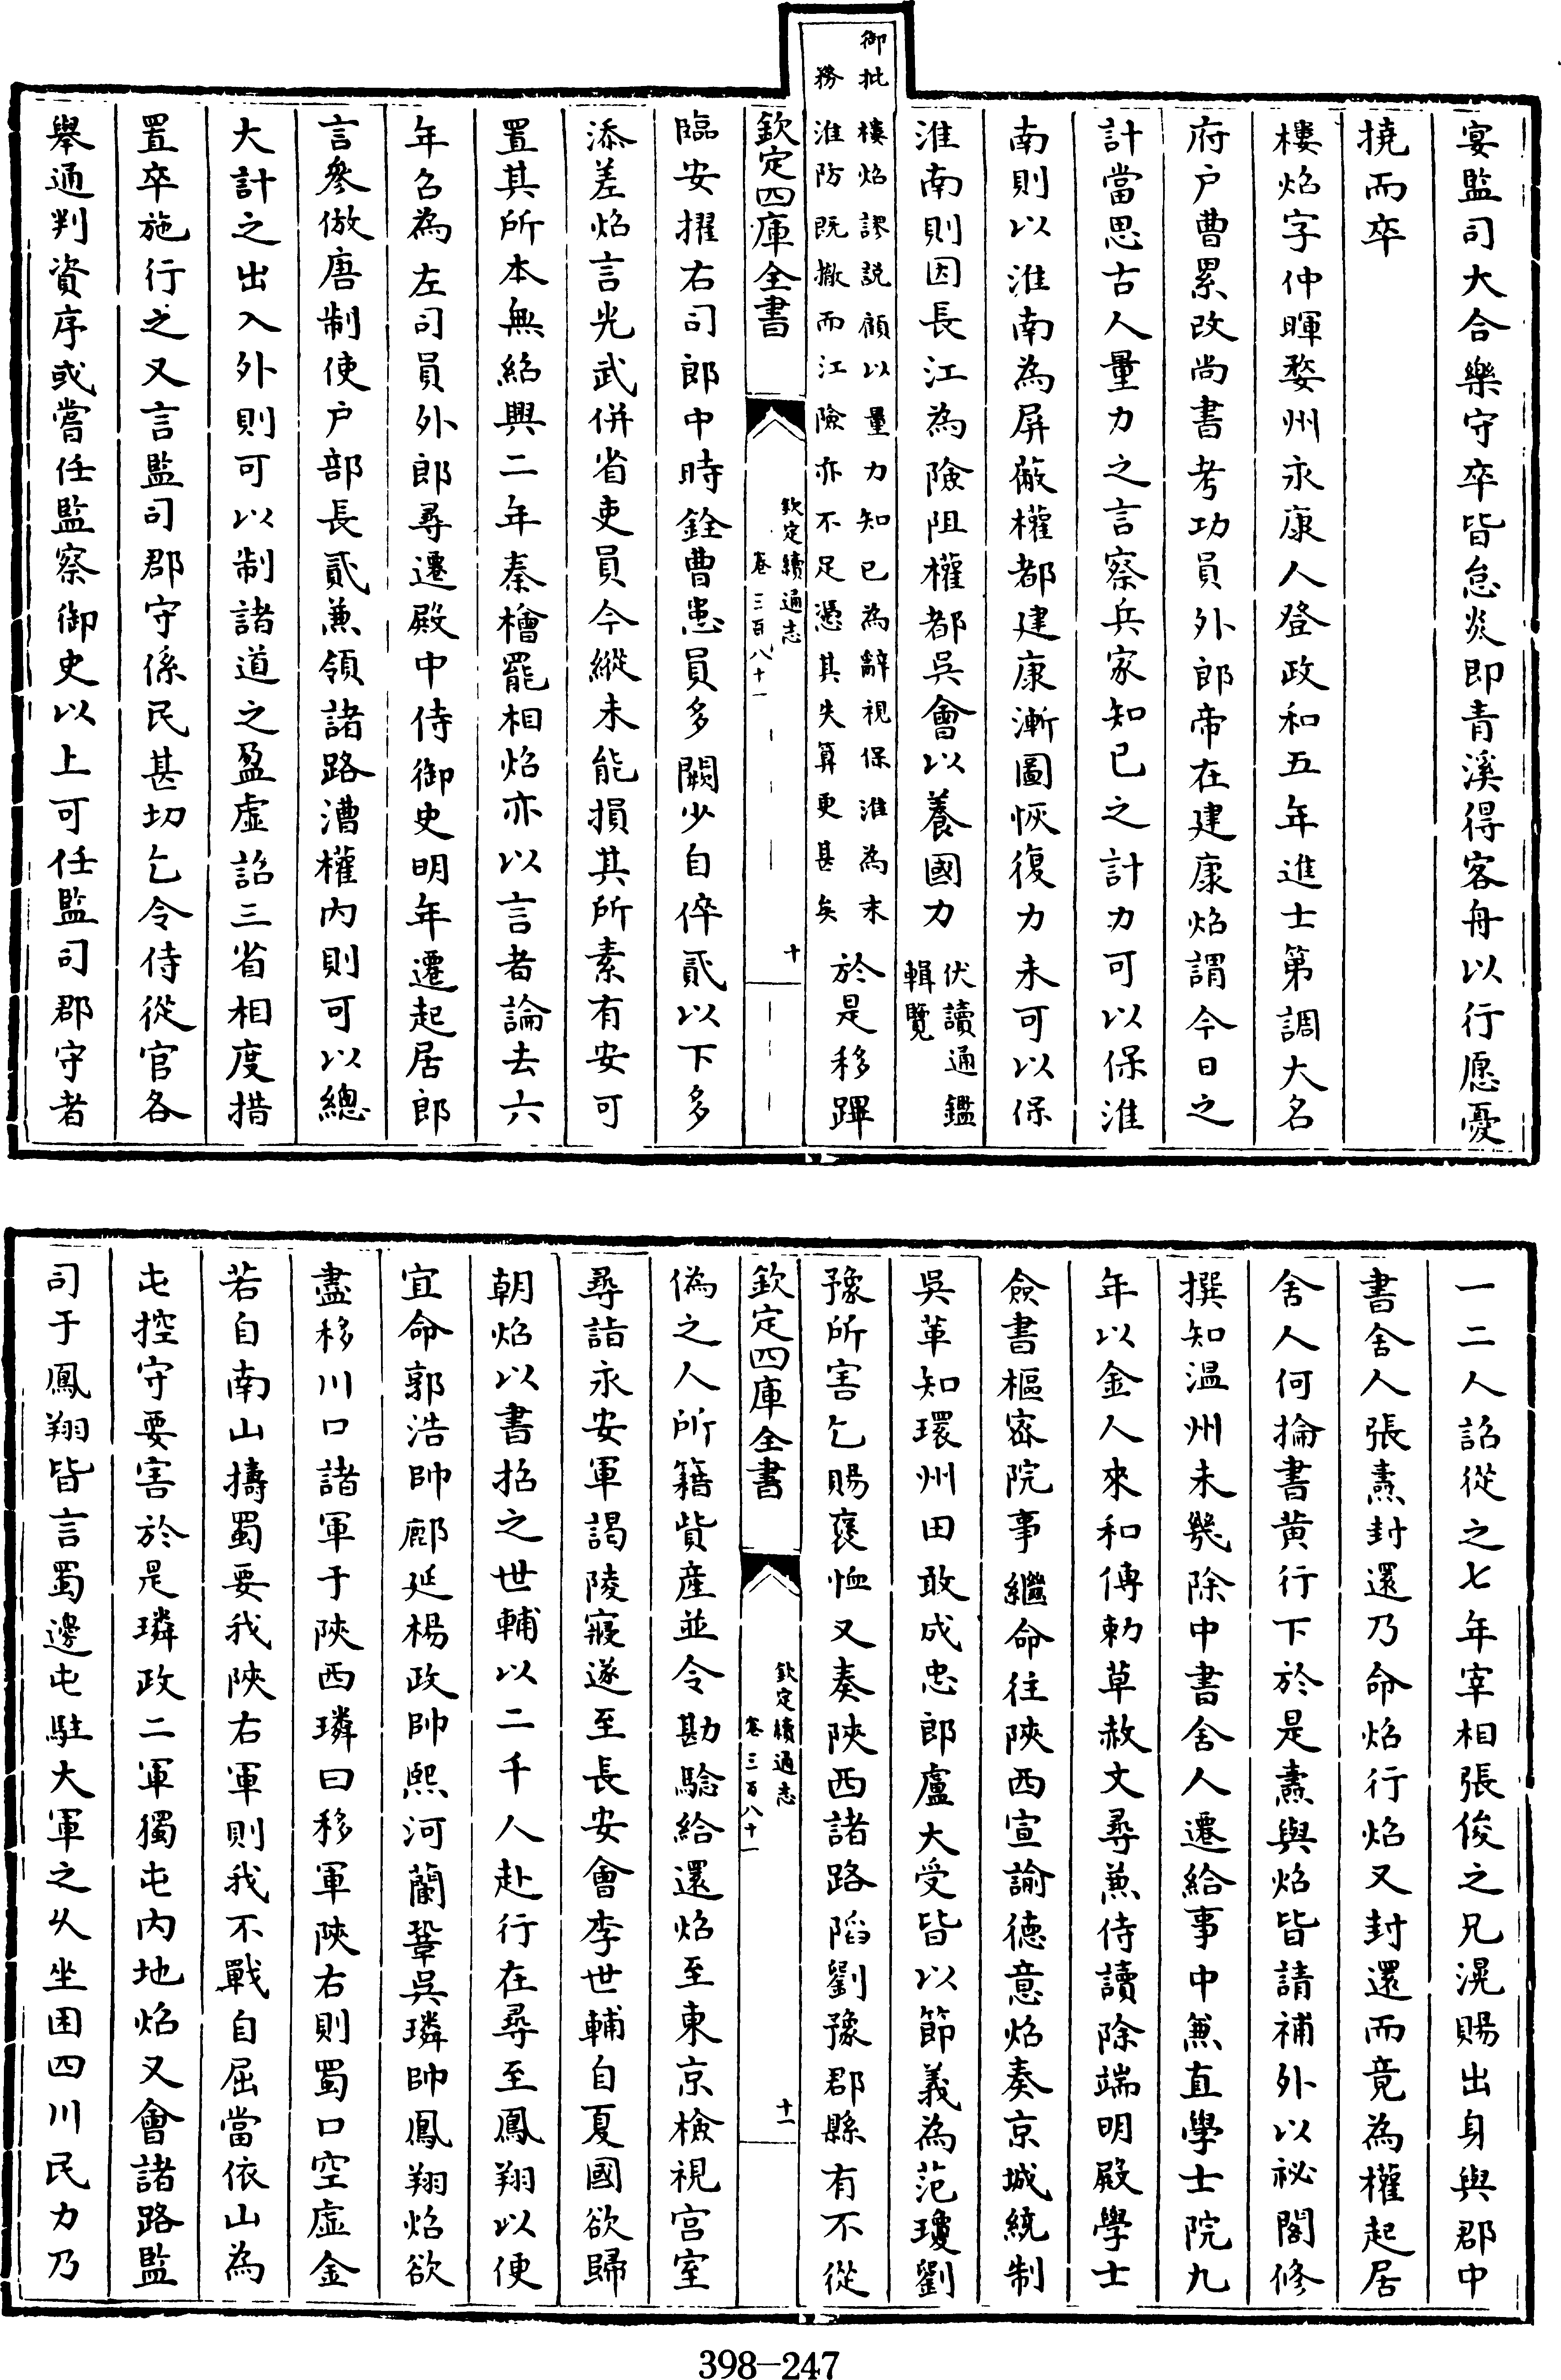 宴監司大合樂守卒皆怠炎即青溪得客舟以行愿憂
撓而卒
樓炤字仲暉婺州永康人登政和五年進士第調大名
府户曹累改尚書考功員外郎帝在建康炤謂今日之
計當思古人量力之言察兵家知已之計力可以保淮
南則以淮南為屏蔽權都建康漸圖恢復力未可以保
淮南則因長江為險阻權都吳會以養國力伏讀通鑑
輯覽
御批樓炤謬説顧以量力知已為辭視保淮為末
務淮防既撤而江險亦不足憑其失算更甚矣
於是移蹕
欽定四庫全書
欽定續通志
卷三百八十一
十
臨安擢右司郎中時銓曹患員多闕少自倅貳以下多
添差炤言光武併省吏員今縱未能損其所素有安可
置其所本無紹興二年秦檜罷相炤亦以言者論去六
年召為左司員外郎尋遷殿中侍御史明年遷起居郎
言參倣唐制使户部長貳兼領諸路漕權内則可以總
大計之出入外則可以制諸道之盈虛詔三省相度措
置卒施行之又言監司郡守係民甚切乞令侍從官各
舉通判資序或嘗任監察御史以上可任監司郡守者
一二人詔從之七年宰相張俊之兄滉賜出身與郡中
書舍人張燾封還乃命炤行炤又封還而竟為權起居
舍人何掄書黄行下於是燾與炤皆請補外以祕閣修
撰知温州未幾除中書舍人遷給事中兼直學士院九
年以金人來和傅勅草赦文尋兼侍讀除端明殿學士
僉書樞密院事繼命往陜西宣諭德意炤奏京城統制
吳革知環州田敢成忠郎盧大受皆以節義為范瓊劉
豫所害乞賜褒恤又奏陜西諸路陷劉豫郡縣有不從
欽定四庫全書
欽定續通志
卷三百八十一
十一
偽之人所籍貲産並令勘驗給還炤至東京檢視宫室
尋詣永安軍謁陵寢遂至長安會李世輔自夏國欲歸
朝炤以書招之世輔以二千人赴行在尋至鳳翔以便
宜命郭浩帥鄜延楊政帥熙河蘭鞏吳璘帥鳳翔炤欲
盡移川口諸軍于陜西璘曰移軍陜右則蜀口空虛金
若自南山擣蜀要我陜右軍則我不戰自屈當依山為
屯控守要害於是璘政二軍獨屯内地炤又會諸路監
司于鳳翔皆言蜀邊屯駐大軍之久坐困四川民力乃
398-247